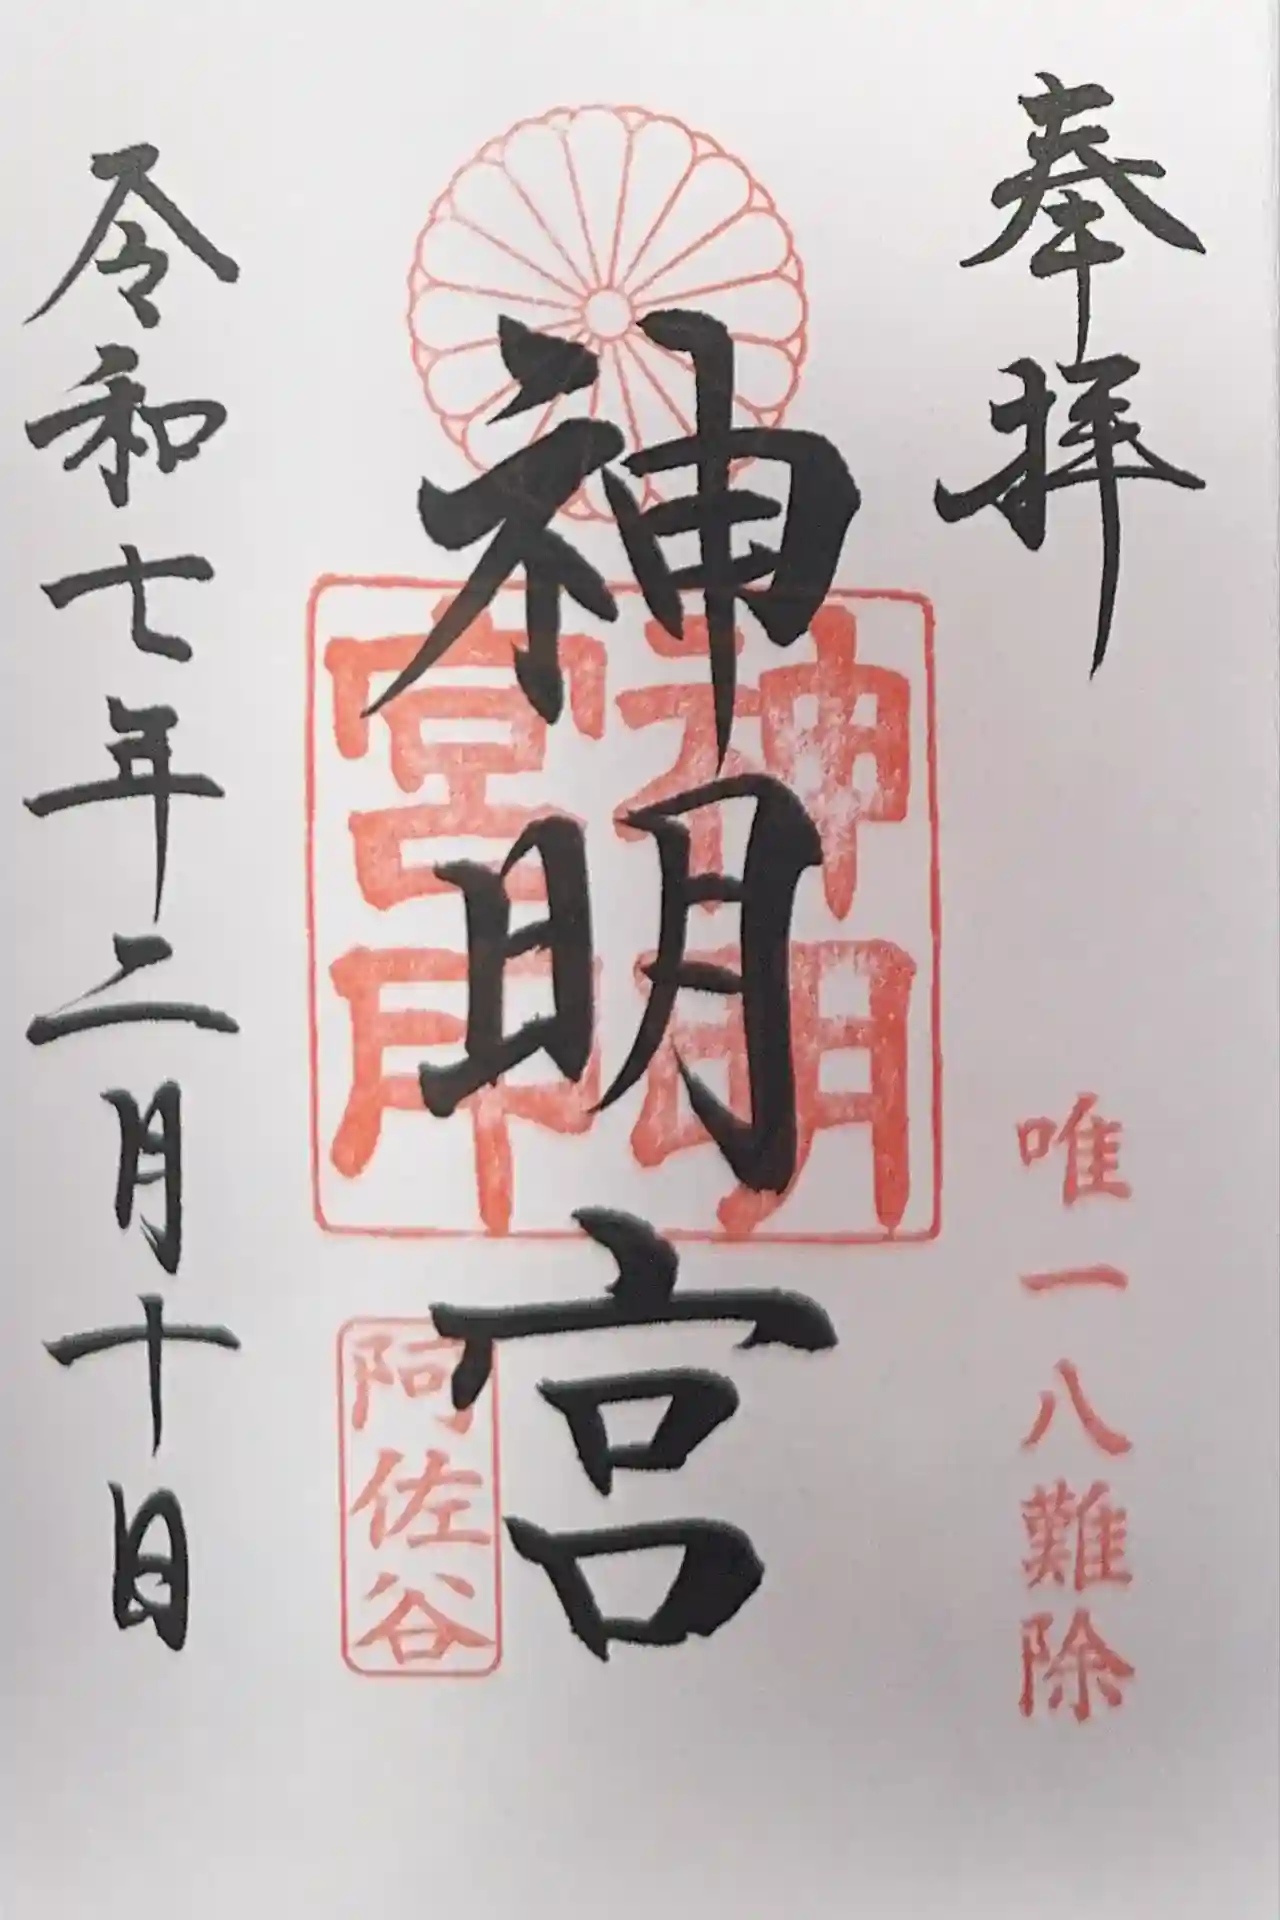 奉拝
唯一八難除
神明宮
神明
宮印
阿佐谷
令和七年二月十日